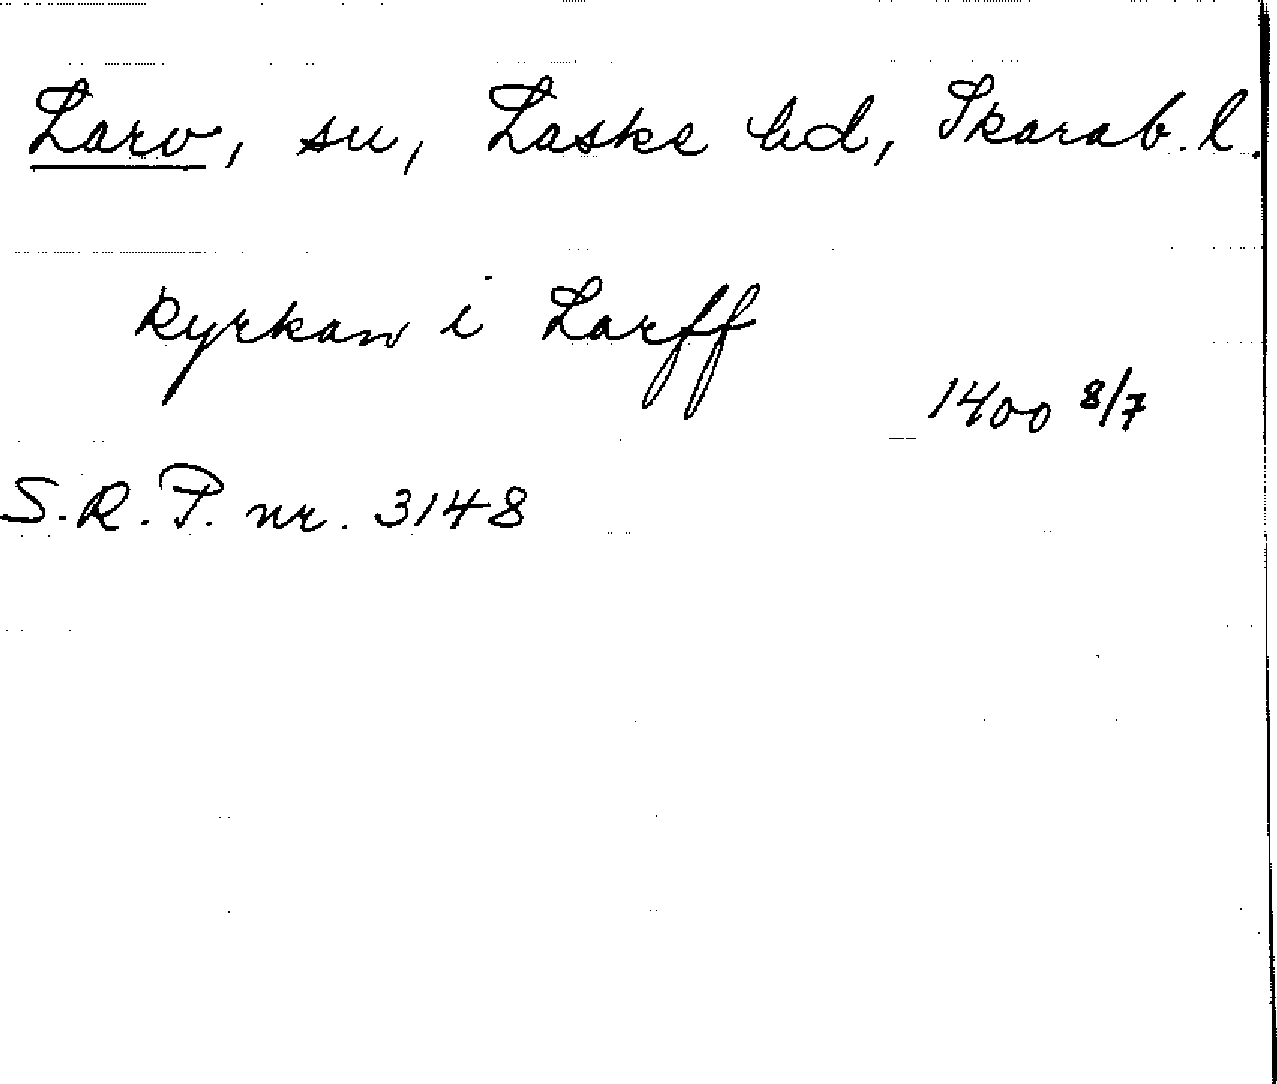 Larv, sn, Laske hd, Skarab. l.
kyrkan i Larff
1400 8/7
S.R.P. nr. 3148